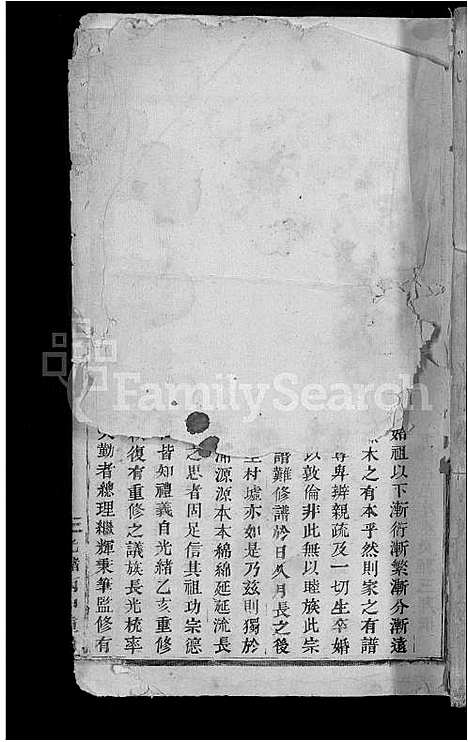 始祖以下漸衍漸繁漸分漸遠
木之有本乎然則家之有譜
尊卑辨親疏及一切生卒婚
以敦倫非此無以睦族此宗
譜難修譜於日久月長之後
村墟亦如是乃兹則獨於
源源本本綿綿延延流長
之思者固足信其祖功宗德
皆知禮義自光緒乙亥重修
復有重修之議族長光梳率
勤者總理繼輝秉筆監修有
三
FamilySearch